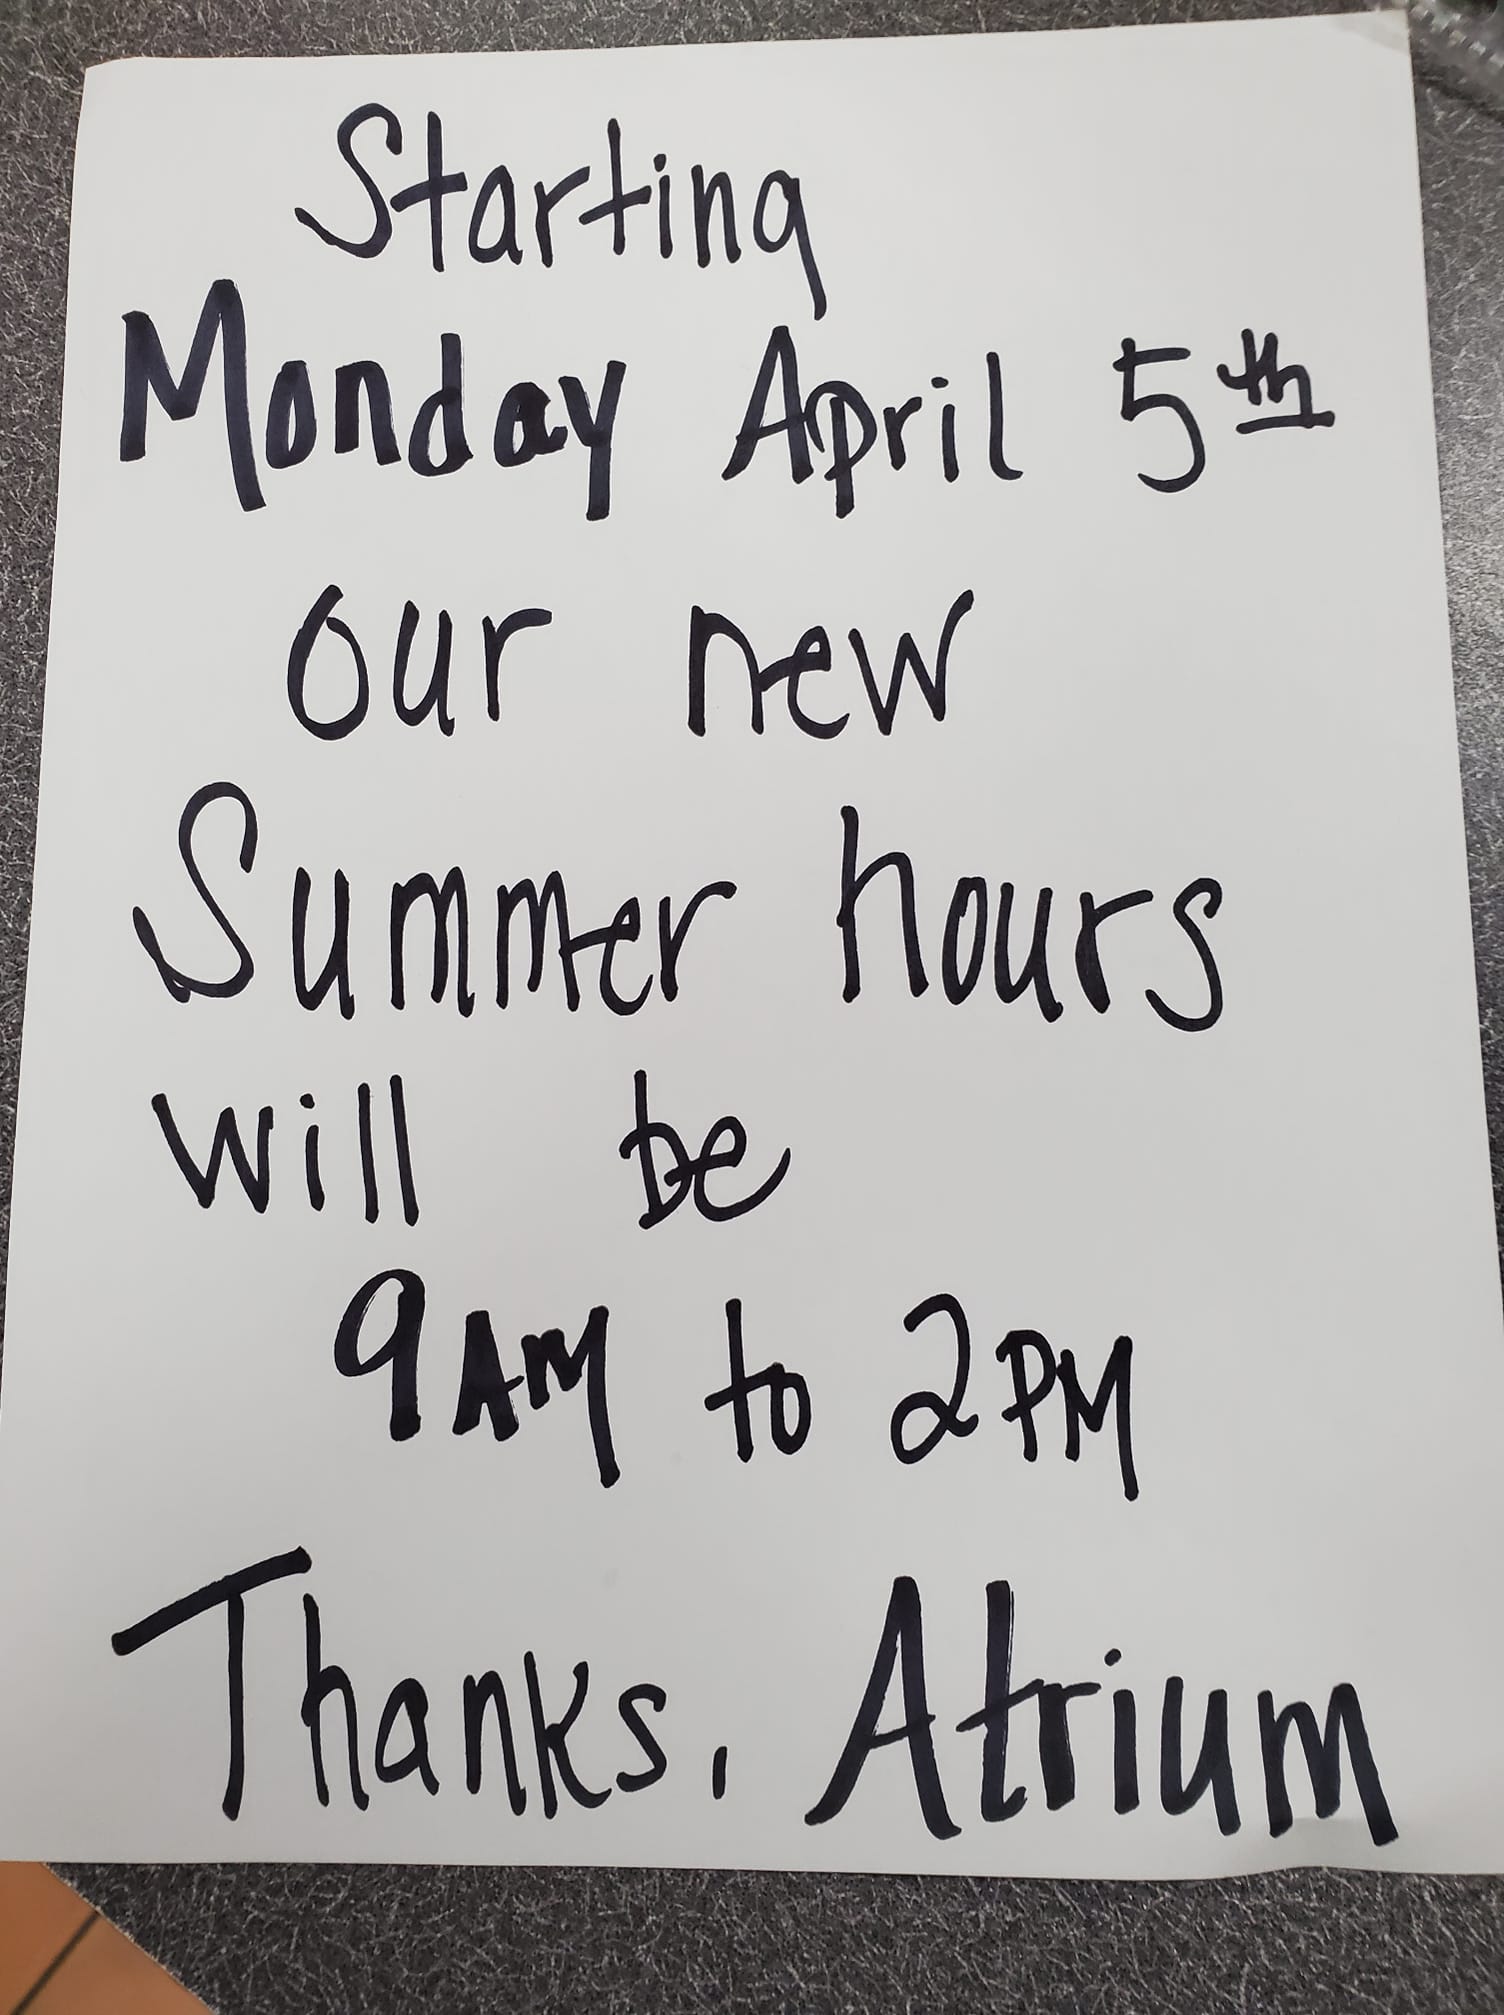 Starting
Monday April 5th
our new
Summer hours
will be
9AM to 2PM
Thanks, Atrium